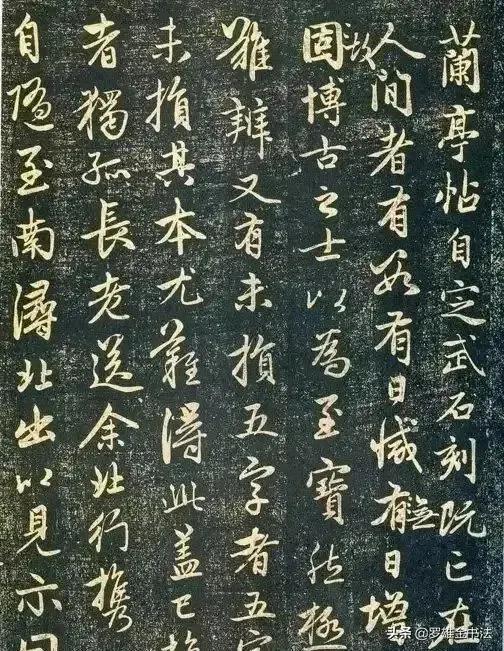 蘭亭帖自定武石刻既亡在
人間者有數有日減有無日增
固故博古之士以為至寶然極
難辨又有未損五字者五字
未損其本尤難得此盖已損
者獨孤長老送余北行携
自隨至南潯北出以見示
头条 @罗雄金书法